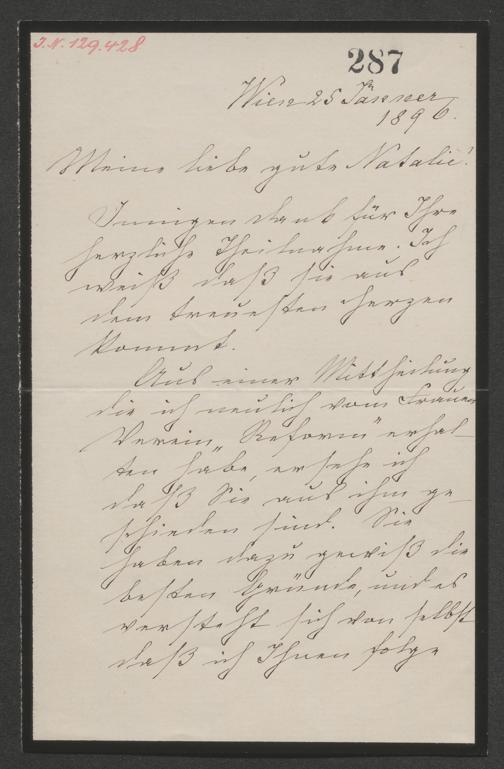 I.N. 129.428
287
Wien 25 Jänner
1896.
Meine liebe gute Natalie!
Innigen Dank für Ihre
herzliche Theilnahme. Ich
weiß daß sie aus
dem treuesten Herzen
kommt.
Aus einer Mittheilung
die ich neulich vom Frauen
Verein „Reform" erhal-
ten habe, ersehe ich
daß Sie aus ihm ge-
schieden sind. Sie
haben dazu gewiß die
besten Gründe, und es
versteht sich von selbst
daß ich Ihnen folge